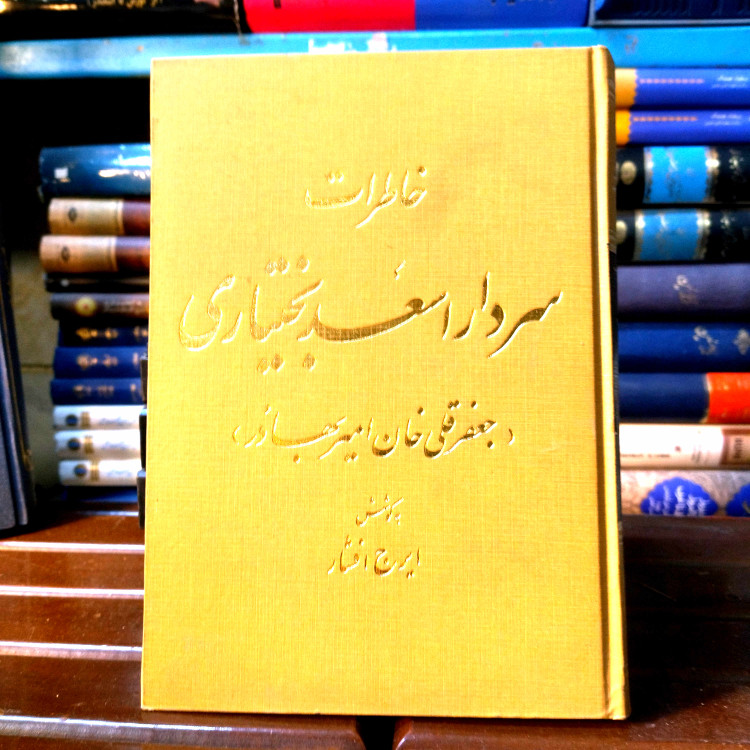 خاطرات
سردار اسعد بختیاری
(جعفر قلی خان امیر بهادر)
بکوشش
ایرج افشار